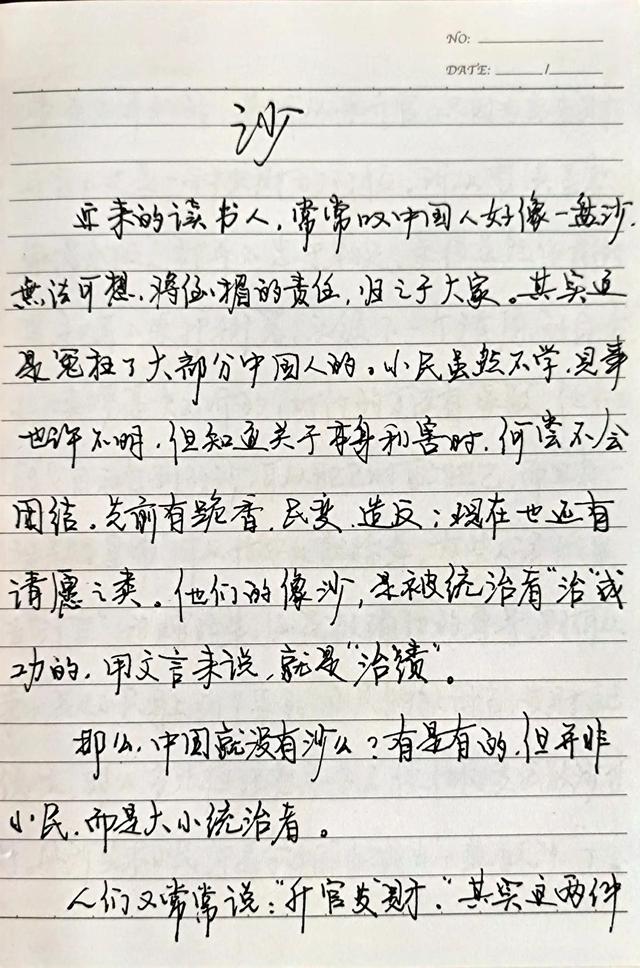 NO:
DATE: /
沙
近来的读书人，常常叹中国人好像一盘沙，
無法可想，将倒楣的责任，归之于大家。其实这
是冤枉了大部分中国人的。小民虽然不学，见事
也许不明，但知道关于本身利害时，何尝不会
团结。先前有跪香，民变，造反；现在也还有
请愿之类。他们的像沙，是被统治者“治”成
功的，用文言来说，就是“治绩”。
那么，中国就没有沙么？有是有的，但并非
小民，而是大小统治者。
人们又常常说：“升官发财”。其实这两件